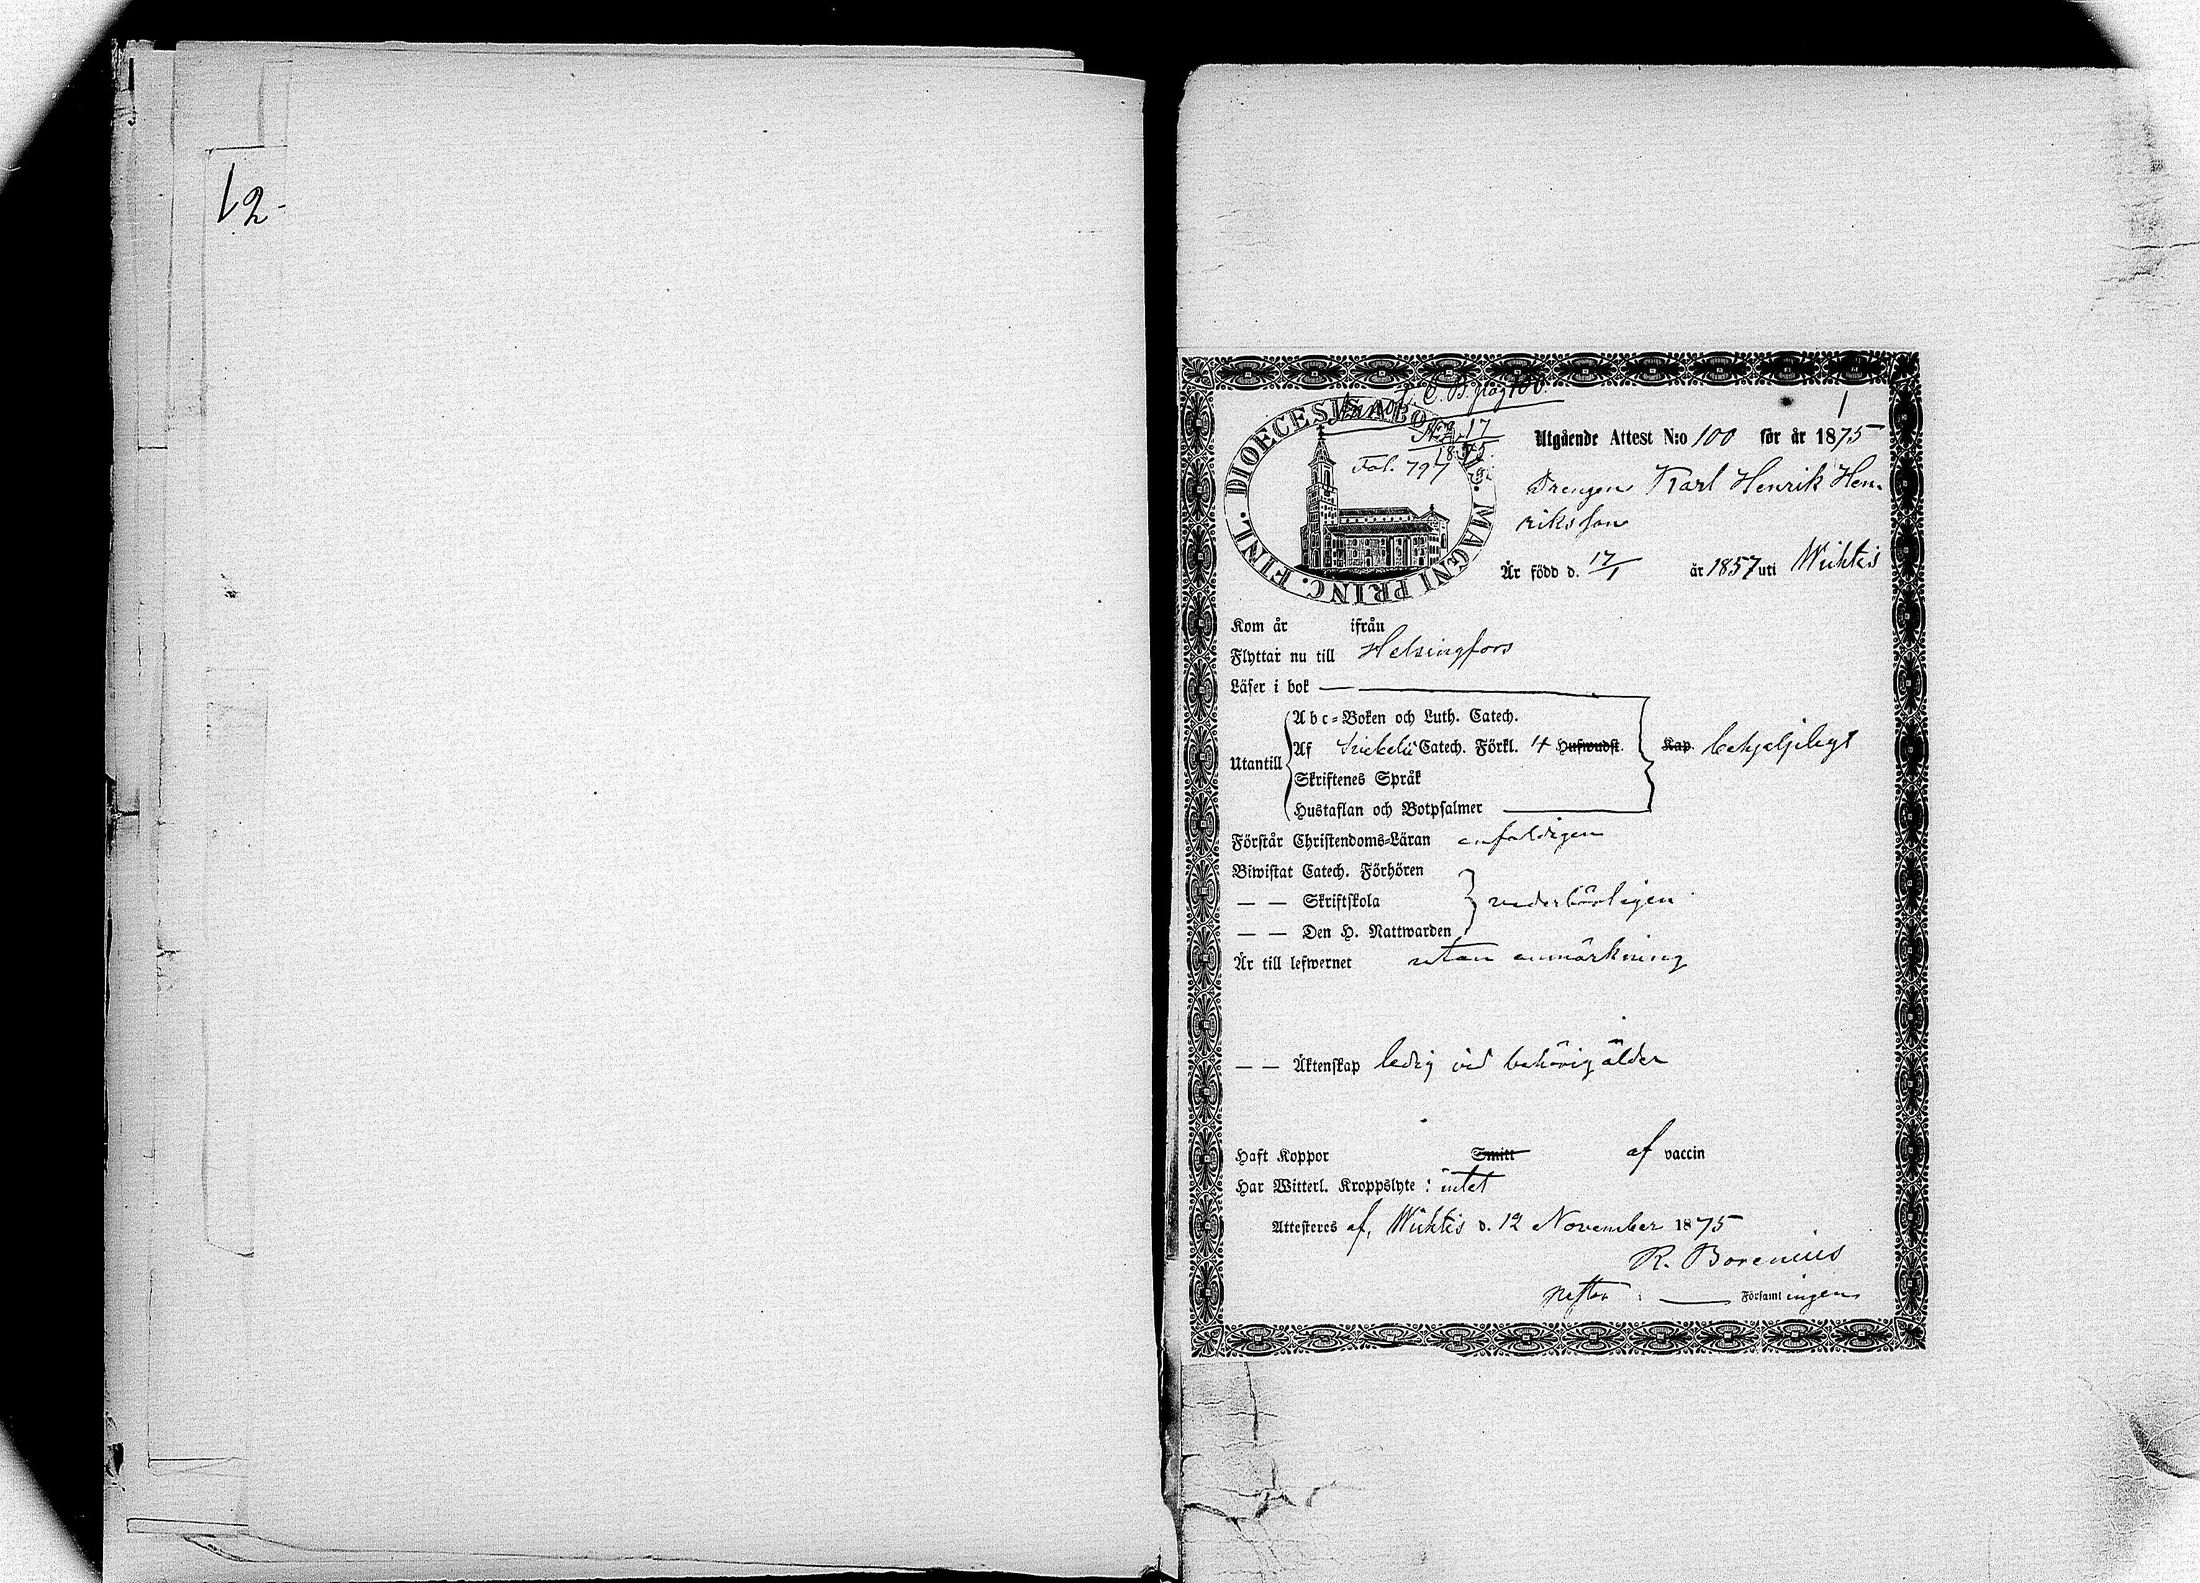 12-
C. B. pag 100.
No 2. 17
1875
Fol. 797
DIOECESIS ABOENSIS. MAGNI PRINC. FINL.
1
Utgående Attest N:o 100 för år 1875
Drengen Karl Henrik Hen-
riksson
Är född d. 17/1 år 1857 uti Wichtis
Kom år ifrån
Flyttar nu till Helsingfors
Läser i bok
Abc-Boken och Luth. Catech.
Utantill Af Svebelii Catech. Förkl. 4 Hufwudst. Kap. behjelpligt
Skriftenes Språk
Hustaflan och Botpsalmer
Förstår Christendoms-Läran enfaldigen
Biwistat Catech. Förhören
— — Skriftskola vederbörligen
— — Den H. Nattwarden
Är till lefwernet utan anmärkning
— — Äktenskap ledig vid behörig ålder
Haft Koppor Smitt af vaccin
Har Witterl. Kroppslyte : intet
Attesteres af, Wichtis d. 12 November 1875
R. Borenius
Församlingen